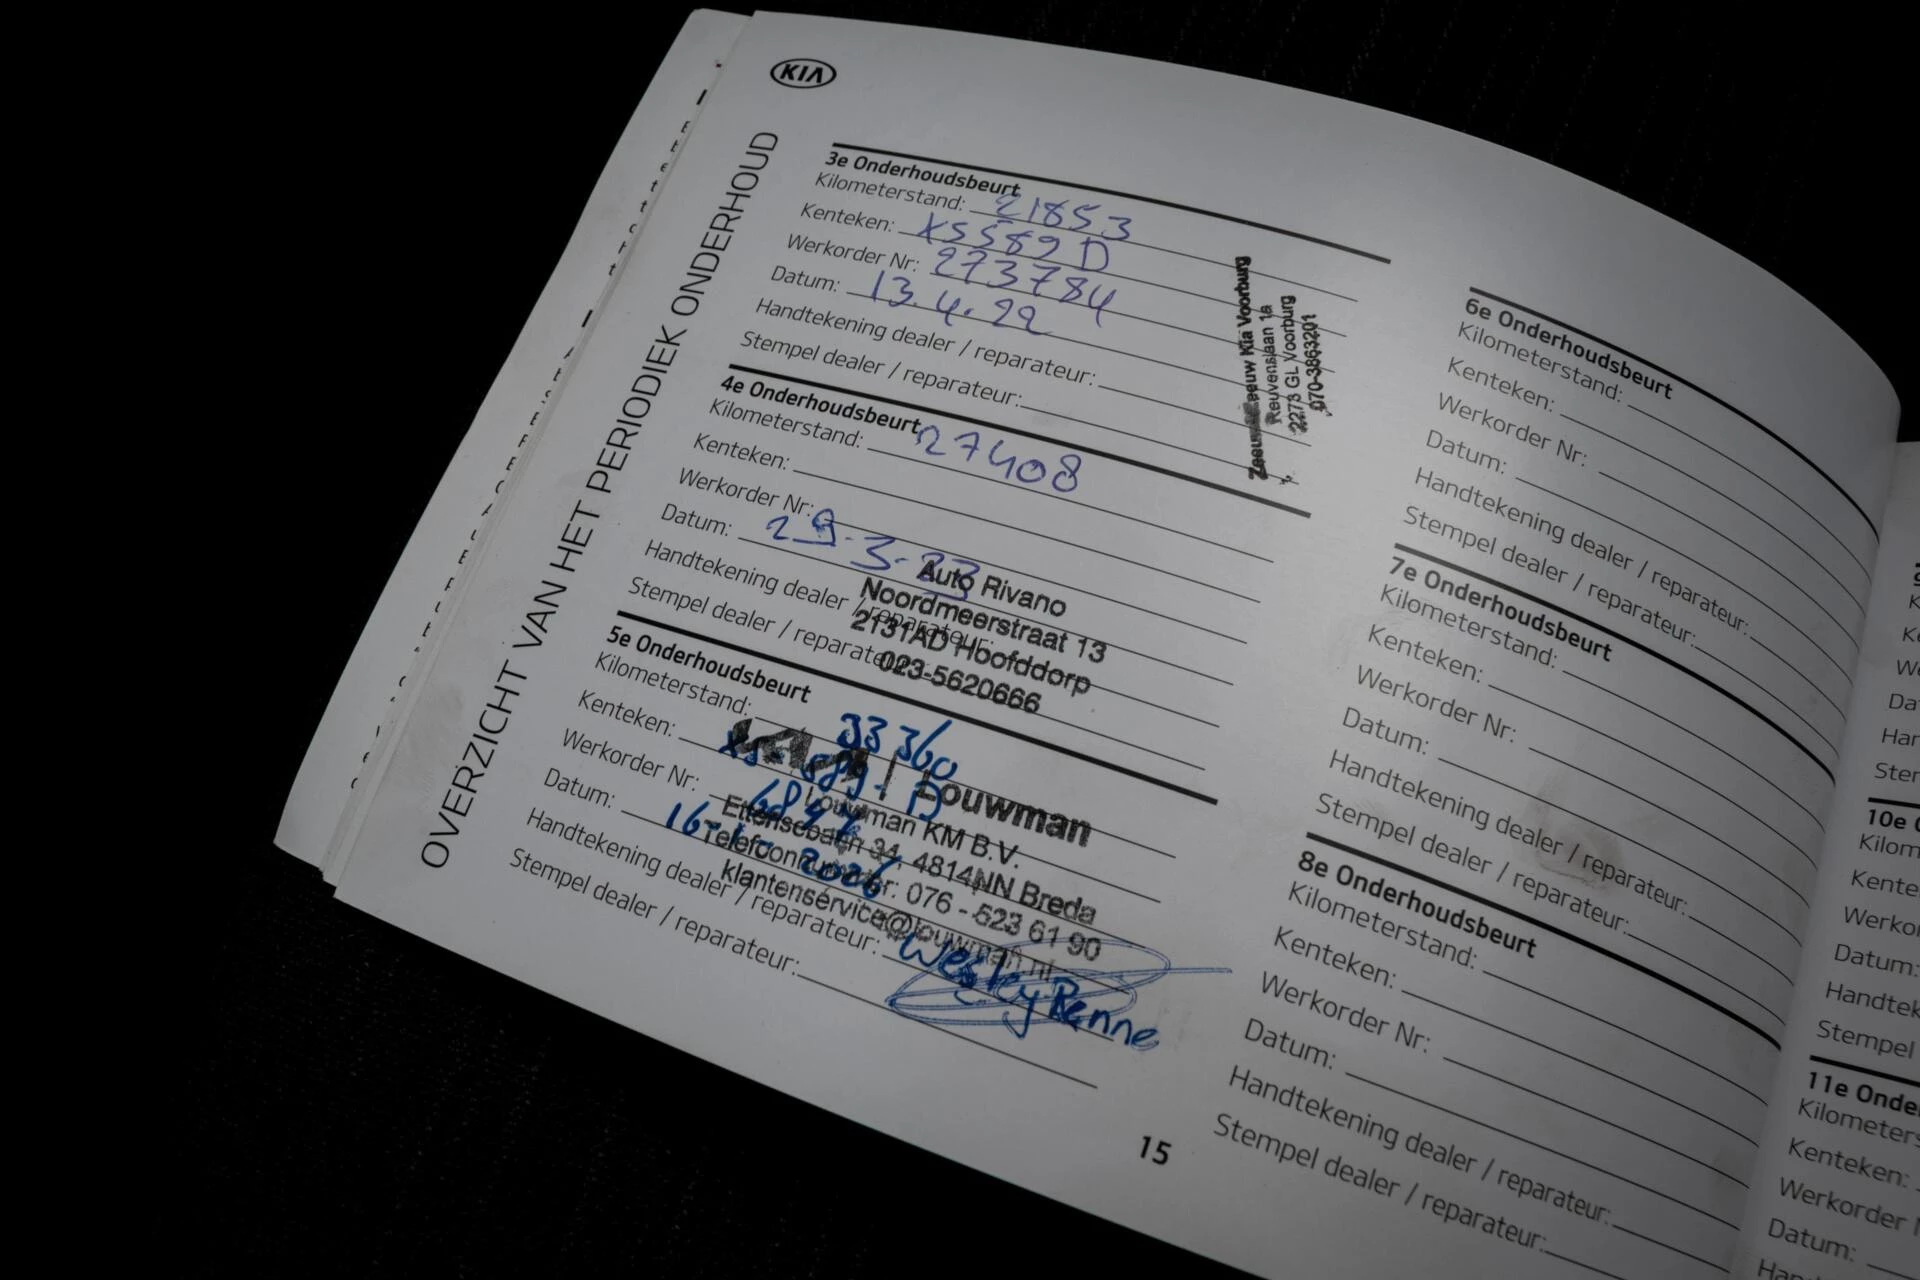 KIA
OVERZICHT VAN HET PERIODIEK ONDERHOUD
3e Onderhoudsbeurt
Kilometerstand: 21853
Kenteken: XS589 D
Werkorder Nr: 273784
Datum: 13.4.22
Handtekening dealer / reparateur:
Stempel dealer / reparateur:
Zeeuw & Zeeuw Kia Voorburg
Reuvenslaan 1a
2273 GL Voorburg
070-3863201
4e Onderhoudsbeurt
Kilometerstand: 27408
Kenteken:
Werkorder Nr:
Datum: 29-3-23
Handtekening dealer / reparateur:
Stempel dealer / reparateur:
Auto Rivano
Noordmeerstraat 13
2131AD Hoofddorp
023-5620666
5e Onderhoudsbeurt
Kilometerstand: 33360
Kenteken: XS-589-D
Werkorder Nr:
Datum: 16-1-2026
Handtekening dealer / reparateur: Wesley Renne
Stempel dealer / reparateur:
KIA | Louwman
Louwman KM B.V.
Ettensebaan 34, 4814NN Breda
Telefoonnummer: 076 - 523 61 90
klantenservice@louwman.nl
15
6e Onderhoudsbeurt
Kilometerstand:
Kenteken:
Werkorder Nr:
Datum:
Handtekening dealer / reparateur:
Stempel dealer / reparateur:
7e Onderhoudsbeurt
Kilometerstand:
Kenteken:
Werkorder Nr:
Datum:
Handtekening dealer / reparateur:
Stempel dealer / reparateur:
8e Onderhoudsbeurt
Kilometerstand:
Kenteken:
Werkorder Nr:
Datum:
Handtekening dealer / reparateur:
Stempel dealer / reparateur:
10e
Stempel
11e Onde
Kilometers
Kenteken:
Werkorder
Datum: